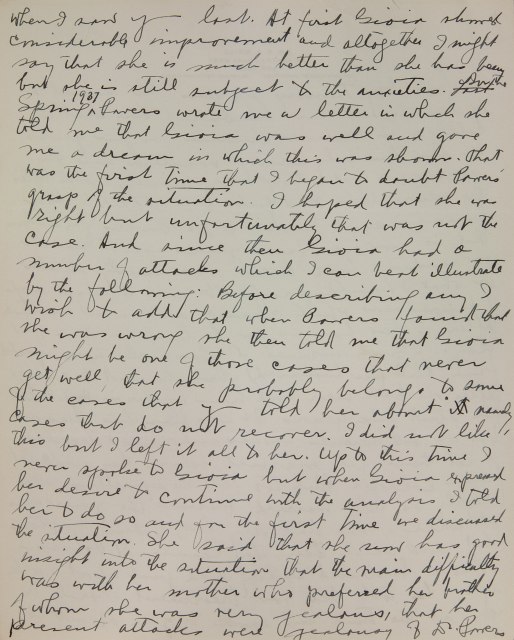 when I saw y last. At first Gioia showed
considerable improvement and altogether I might
say that she is much better than she has been
but she is still subject to the anxieties. In the
Spring 1937 Powers wrote me a letter in which she
told me that Gioia was well and gave
me a dream in which this was shown. That
was the first time that I began to doubt Powers'
grasp of the situation. I hoped that she was
right but unfortunately that was not the
case. And since then Gioia had a
number of attacks which I can best illustrate
by the following: Before describing any I
wish to add that when Powers found that
she was wrong she then told me that Gioia
might be one of those cases that never
get well, that she probably belongs to some
of the cases that y told her about namely,
cases that do not recover. I did not like
this but I left it all to her. Up to this time I
never spoke to Gioia but when Gioia expressed
her desire to continue with the analysis I told
her to do so and for the first time we discussed
the situation. She said that she now has good
insight into the situation that the main difficulty
was with her mother who preferred her brother
of whom she was very jealous, that her
present attacks were jealousy of Dr. Powers